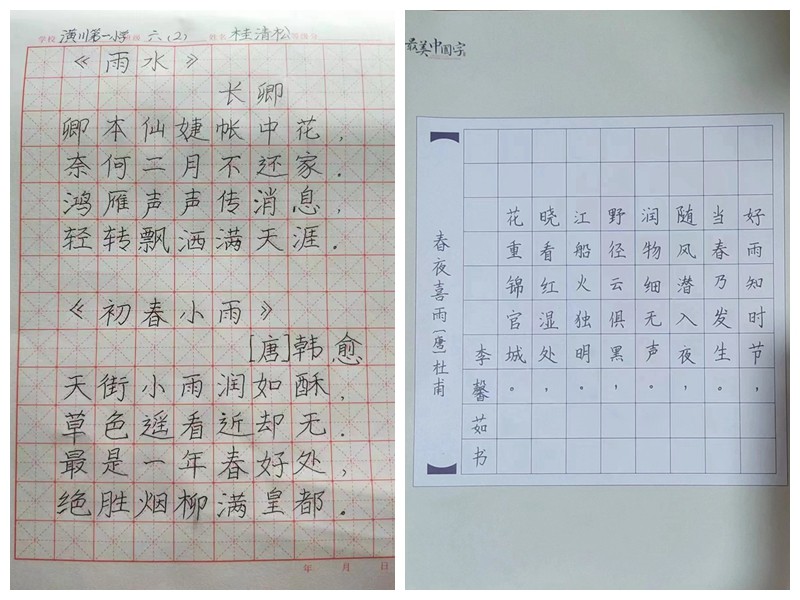 学校 潢川第一小学 班级 六(2) 姓名 桂清松 等级分
《雨水》
长卿
卿本仙婕帐中花，
奈何二月不还家.
鸿雁声声传消息，
轻转飘洒满天涯.
《初春小雨》
[唐]韩愈
天街小雨润如酥，
草色遥看近却无.
最是一年春好处，
绝胜烟柳满皇都.
年 月 日
最美中国字
春夜喜雨[唐]杜甫
好雨知时节，
当春乃发生。
随风潜入夜，
润物细无声。
野径云俱黑，
江船火独明。
晓看红湿处，
花重锦官城。
李馨茹书